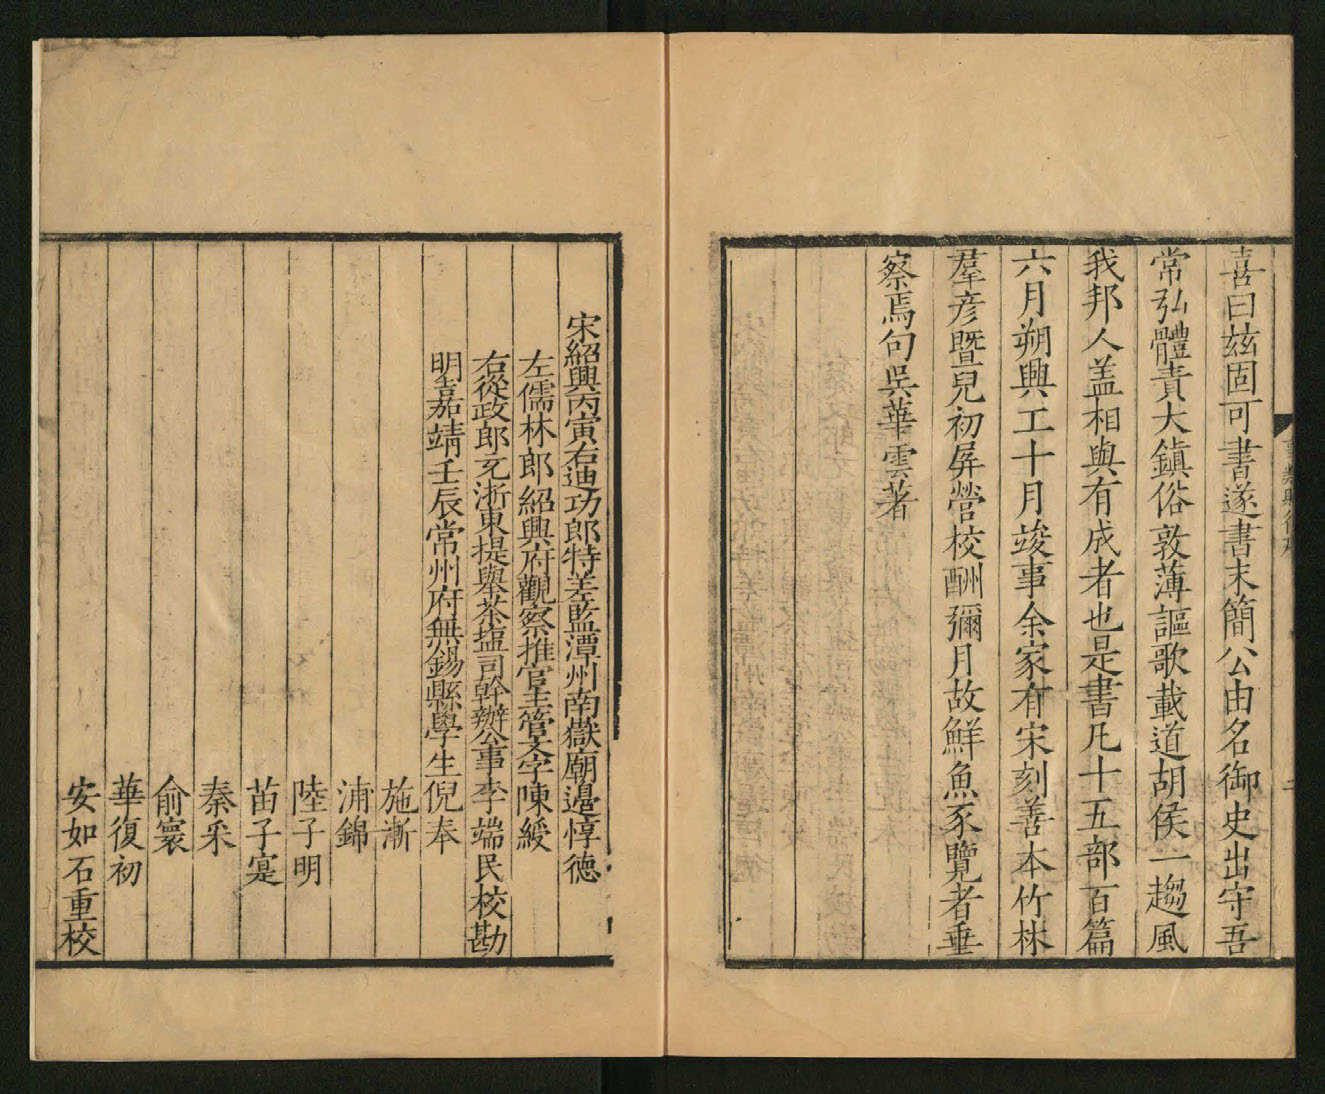 喜曰玆固可書遂書末簡公由名御史出守吾
常弘體責大鎮俗敦薄謳歌載道胡侯一趨風
我邦人盖相與有成者也是書凡十五部百篇
六月朔興工十月竣事余家有宋刻善本竹林
羣彦暨兒初屏營校酬彌月故鮮魚豕覽者垂
察焉句吳華雲著
宋紹興丙寅右迪功郎特差監潭州南嶽廟邊惇德
左儒林郎紹興府觀察推官主管文字陳綬
右從政郎充浙東提舉茶塩司幹辦公事李端民校勘
明嘉靖壬辰常州府無錫縣學生倪奉
施漸
浦錦
陸子明
苗子寔
秦采
俞寰
華復初
安如石重校